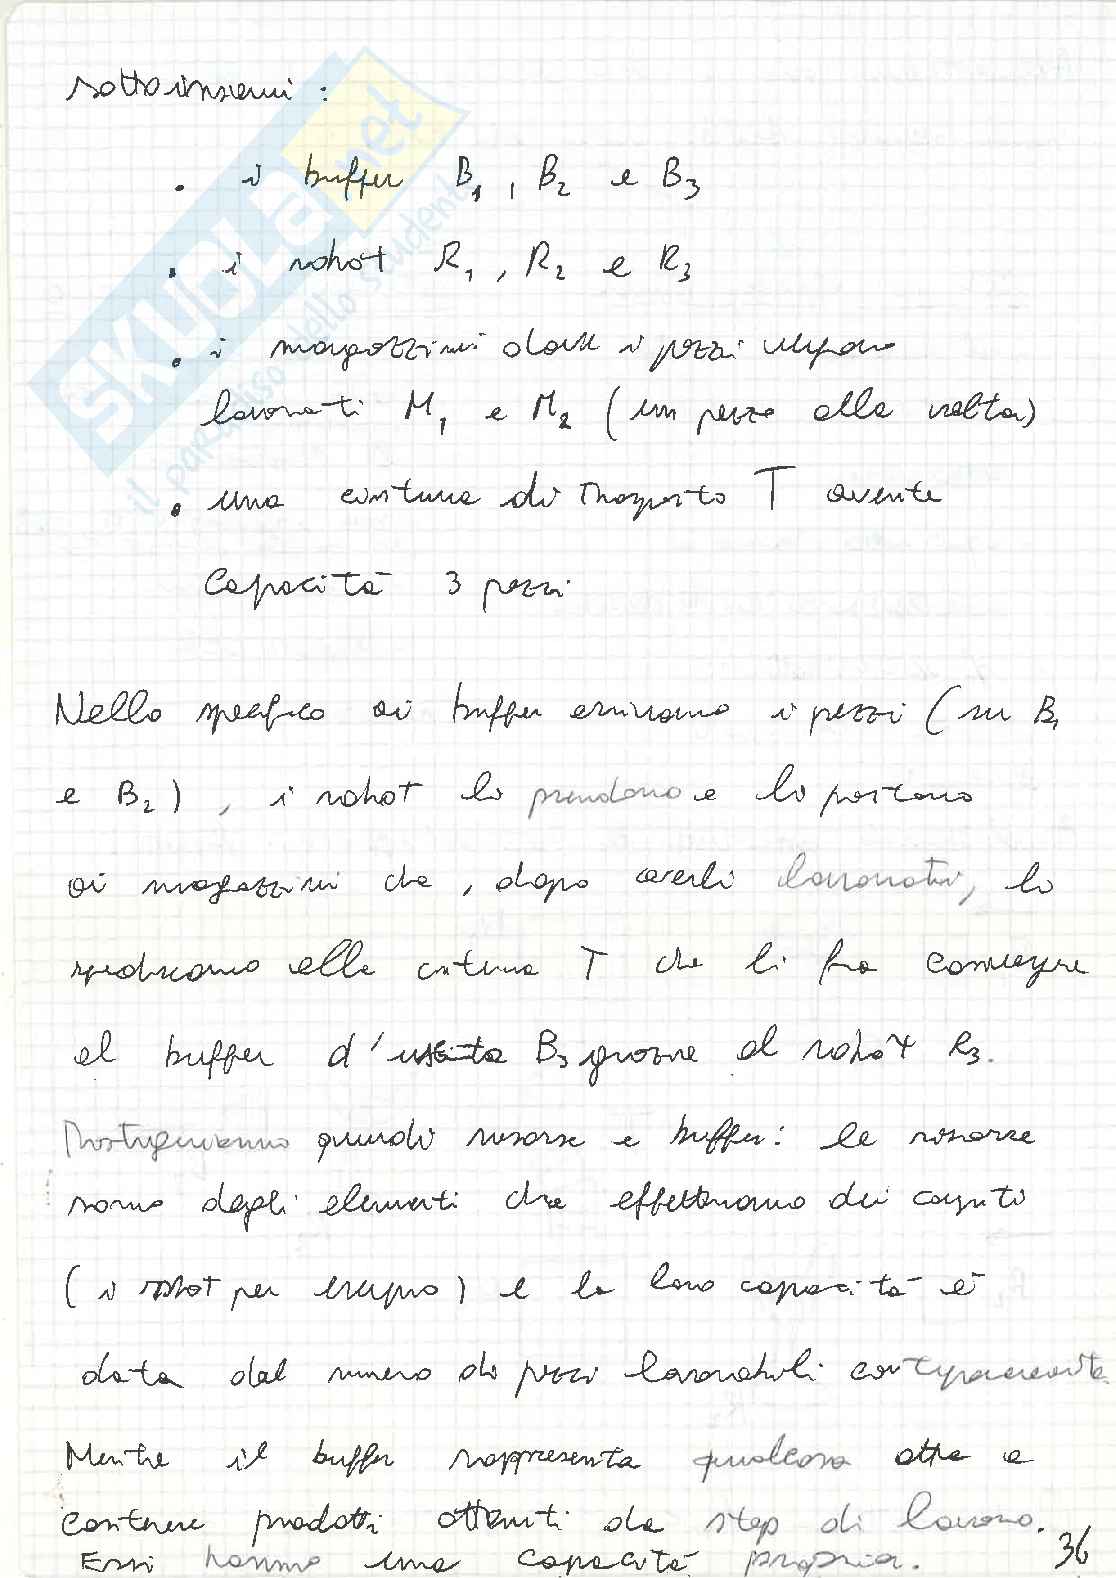 sottoinsiemi :
• i buffer B1 , B2 e B3
• i robot R1 , R2 e R3
• i magazzini dove i pezzi vengono
lavorati M1 e M2 ( un pezzo alla volta )
• una cintura di trasporto T avente
capacità 3 pezzi
Nello specifico ai buffer arrivano i pezzi ( su B1
e B2 ) , i robot li prendono e li portano
ai magazzini che , dopo averli lavorati , li
spediscono alla cintura T che li fa convergere
al buffer d'uscita B3 grazie al robot R3.
quindi risorse e buffer : le risorse
sono degli elementi che effettuano dei compiti
( i robot per esempio ) e la loro capacità è
data dal numero di pezzi lavorabili
Mentre il buffer rappresenta qualcosa atta a
contenere prodotti ottenuti da step di lavoro.
Essi hanno una capacità propria.
36
SKUOLA.net
il paradiso dello studente